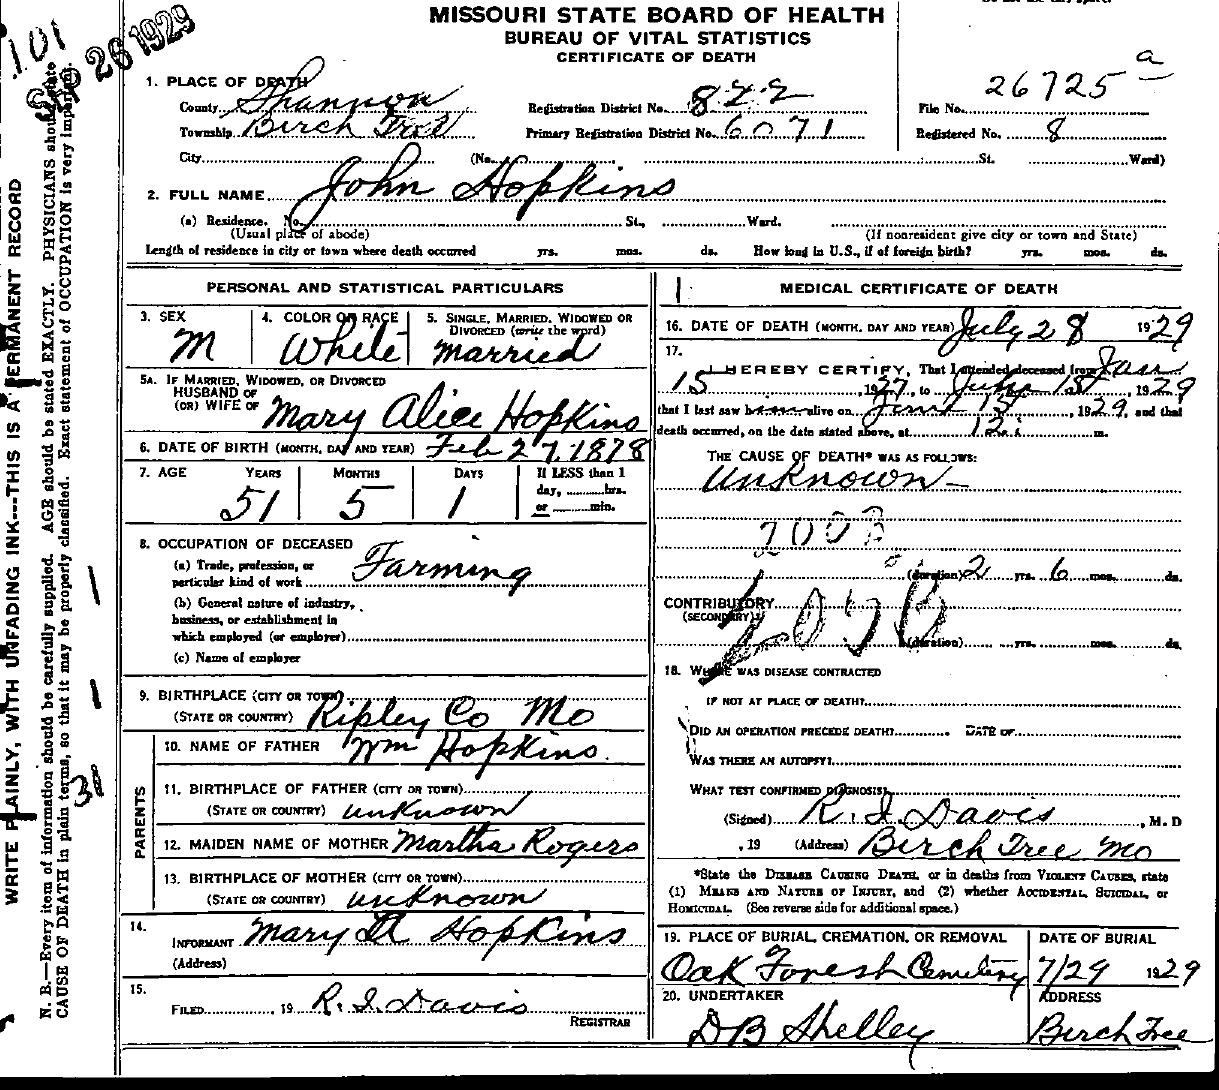 MISSOURI STATE BOARD OF HEALTH
BUREAU OF VITAL STATISTICS
CERTIFICATE OF DEATH
101
26 1929
1. PLACE OF DEATH
County Shannon Registration District No. 822 File No. 26725 a
Township Birch Tree Primary Registration District No. 6071 Registered No. 8
City (No. St. Ward)
2. FULL NAME John Hopkins
(a) Residence. No. St., Ward.
(Usual place of abode) (If nonresident give city or town and State)
Length of residence in city or town where death occurred yrs. mos. ds. How long in U.S., if of foreign birth? yrs. mos. ds.
PERSONAL AND STATISTICAL PARTICULARS
3. SEX 4. COLOR OR RACE 5. SINGLE, MARRIED, WIDOWED OR
DIVORCED (write the word)
M White married
5A. IF MARRIED, WIDOWED, OR DIVORCED
HUSBAND OF
(OR) WIFE OF Mary Alice Hopkins
6. DATE OF BIRTH (MONTH, DAY AND YEAR) Feb 27, 1878
7. AGE YEARS MONTHS DAYS If LESS than 1
day, hrs.
or min.
51 5 1
8. OCCUPATION OF DECEASED
(a) Trade, profession, or
particular kind of work Farming
(b) General nature of industry,
business, or establishment in
which employed (or employer)
(c) Name of employer
9. BIRTHPLACE (CITY OR TOWN)
(STATE OR COUNTRY) Ripley Co Mo
PARENTS
10. NAME OF FATHER Wm Hopkins.
11. BIRTHPLACE OF FATHER (CITY OR TOWN)
(STATE OR COUNTRY) unknown
12. MAIDEN NAME OF MOTHER Martha Rogers
13. BIRTHPLACE OF MOTHER (CITY OR TOWN)
(STATE OR COUNTRY) unknown
14.
INFORMANT Mary Hopkins
(Address)
15.
FILED , 19 R. I. Davis
REGISTRAR
MEDICAL CERTIFICATE OF DEATH
16. DATE OF DEATH (MONTH, DAY AND YEAR) July 28 1929
17.
I HEREBY CERTIFY, That I attended deceased from Jan
15 1927, to 1929
that I last saw him alive on June 15, 1929, and that
death occurred, on the date stated above, at 12 m.
THE CAUSE OF DEATH* WAS AS FOLLOWS:
Unknown
(duration) 2 yrs. 6 mos. ds.
CONTRIBUTORY
(SECONDARY)
(duration) yrs. mos. ds.
18. WHERE WAS DISEASE CONTRACTED
IF NOT AT PLACE OF DEATH?
DID AN OPERATION PRECEDE DEATH? DATE OF
WAS THERE AN AUTOPSY?
WHAT TEST CONFIRMED DIAGNOSIS?
(Signed) R. I. Davis, M. D
, 19 (Address) Birch Tree Mo
*State the DISEASE CAUSING DEATH, or in deaths from VIOLENT CAUSES, state
(1) MEANS AND NATURE OF INJURY, and (2) whether ACCIDENTAL, SUICIDAL, or
HOMICIDAL. (See reverse side for additional space.)
19. PLACE OF BURIAL, CREMATION, OR REMOVAL DATE OF BURIAL
Oak Forest Cemetery 7/29 1929
20. UNDERTAKER ADDRESS
DB Shelley Birch Tree
WRITE PLAINLY, WITH UNFADING INK---THIS IS A PERMANENT RECORD
N. B.—Every item of information should be carefully supplied. AGE should be stated EXACTLY. PHYSICIANS should state
CAUSE OF DEATH in plain terms, so that it may be properly classified. Exact statement of OCCUPATION is very important.
31